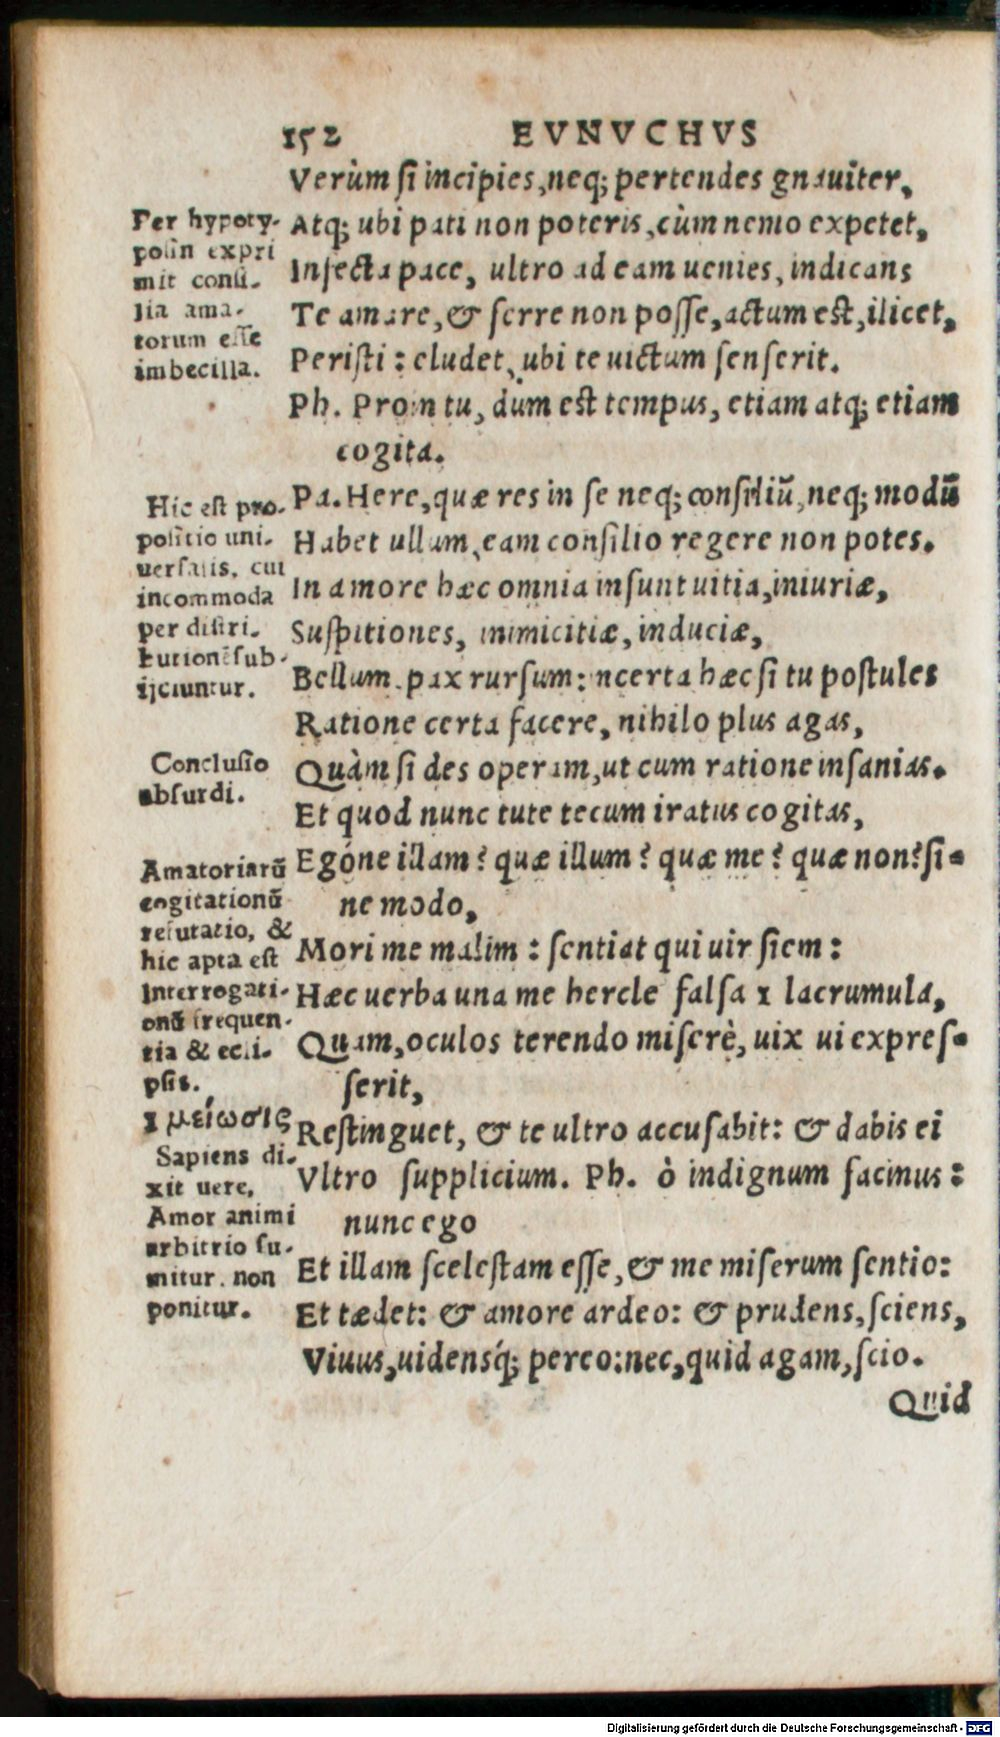 152 EVNVCHVS
Verùm ſi incipies, neq; pertendes gnauiter,
Atq; ubi pati non poteris, cùm nemo expetet,
Infecta pace, ultro ad eam uenies, indicans
Te amare, & ferre non poſſe, actum eſt, ilicet,
Periſti: eludet, ubi te uictum ſenſerit.
Ph. Proin tu, dum eſt tempus, etiam atq; etiam
cogita.
Pa. Here, quæ res in ſe neq; conſiliū, neq; modū
Habet ullum, eam conſilio regere non potes.
In amore hæc omnia inſunt uitia, iniuriæ,
Suſpitiones, inimicitiæ, induciæ,
Bellum, pax rurſum: ncerta hæc ſi tu poſtules
Ratione certa facere, nihilo plus agas,
Quàm ſi des operam, ut cum ratione inſanias.
Et quod nunc tute tecum iratus cogitas,
Egóne illam? quæ illum? quæ me? quæ non? ſi-
ne modo,
Mori me malim: ſentiat qui uir ſiem:
Hæc uerba una me hercle falſa 1 lacrumula,
Quam, oculos terendo miſerè, uix ui expreſ-
ſerit,
Reſtinguet, & te ultro accuſabit: & dabis ei
Vltro ſupplicium. Ph. ò indignum facinus:
nunc ego
Et illam ſceleſtam eſſe, & me miſerum ſentio:
Et tædet: & amore ardeo: & prudens, ſciens,
Viuus, uidensq́; pereo: nec, quid agam, ſcio.
Quid
Per hypoty-
poſin expri
mit conſi-
lia ama-
torum eſſe
imbecilla.
Hic eſt pro-
poſitio uni-
uerſalis, cui
incommoda
per diſtri-
butionē ſub-
ijciuntur.
Concluſio
abſurdi.
Amatoriarū
cogitationū
refutatio, &
hic apta eſt
Interrogati-
onū frequen-
tia & ecli-
pſis.
1 μείωσις
Sapiens di-
xit uere,
Amor animi
arbitrio ſu-
mitur, non
ponitur.
Digitalisierung gefördert durch die Deutsche Forschungsgemeinschaft - DFG